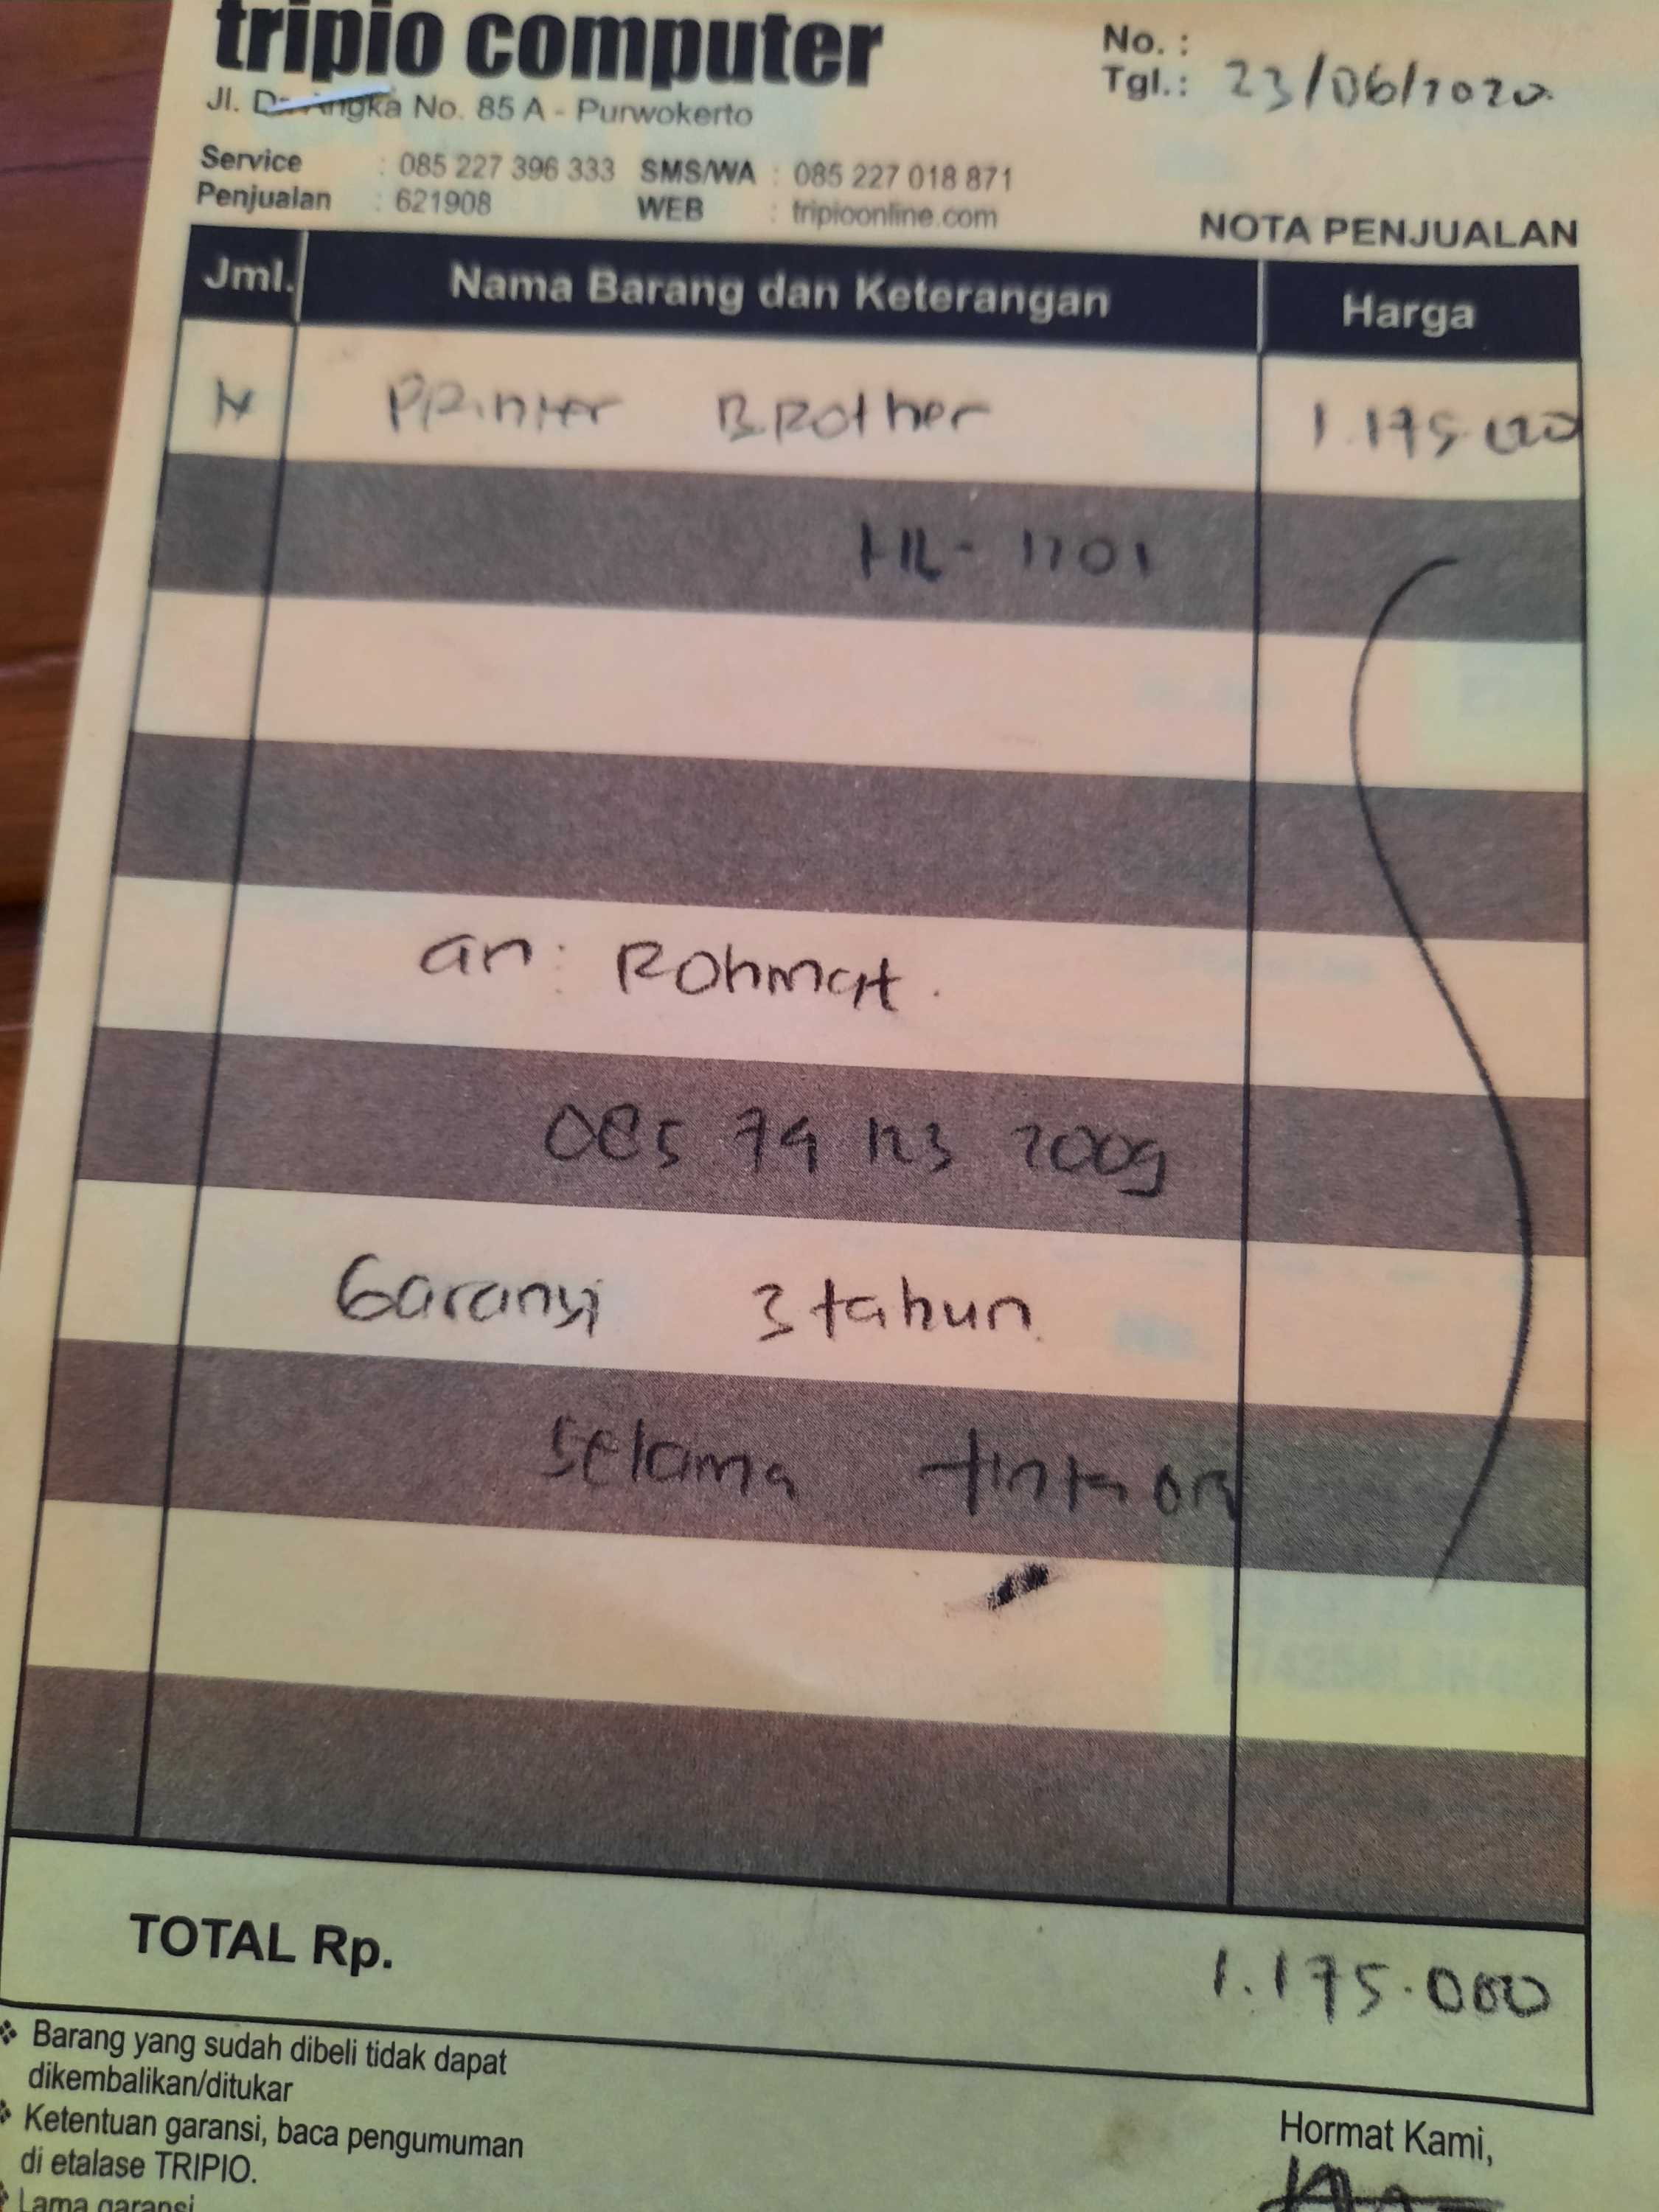 tripio computer
Jl. Dr. Angka No. 85 A - Purwokerto
No. :
Tgl.: 23/06/2020
Service : 085 227 396 333 SMS/WA : 085 227 018 871
Penjualan : 621908 WEB : tripioonline.com
NOTA PENJUALAN
Jml. Nama Barang dan Keterangan Harga
Printer Brother 1.175.000
HL- 1201
an: Rohmat.
085 74 123 2009
Garansi 3 tahun
selama tinta ori
TOTAL Rp. 1.175.000
❖ Barang yang sudah dibeli tidak dapat
dikembalikan/ditukar
❖ Ketentuan garansi, baca pengumuman
di etalase TRIPIO.
Hormat Kami,
Lama garansi